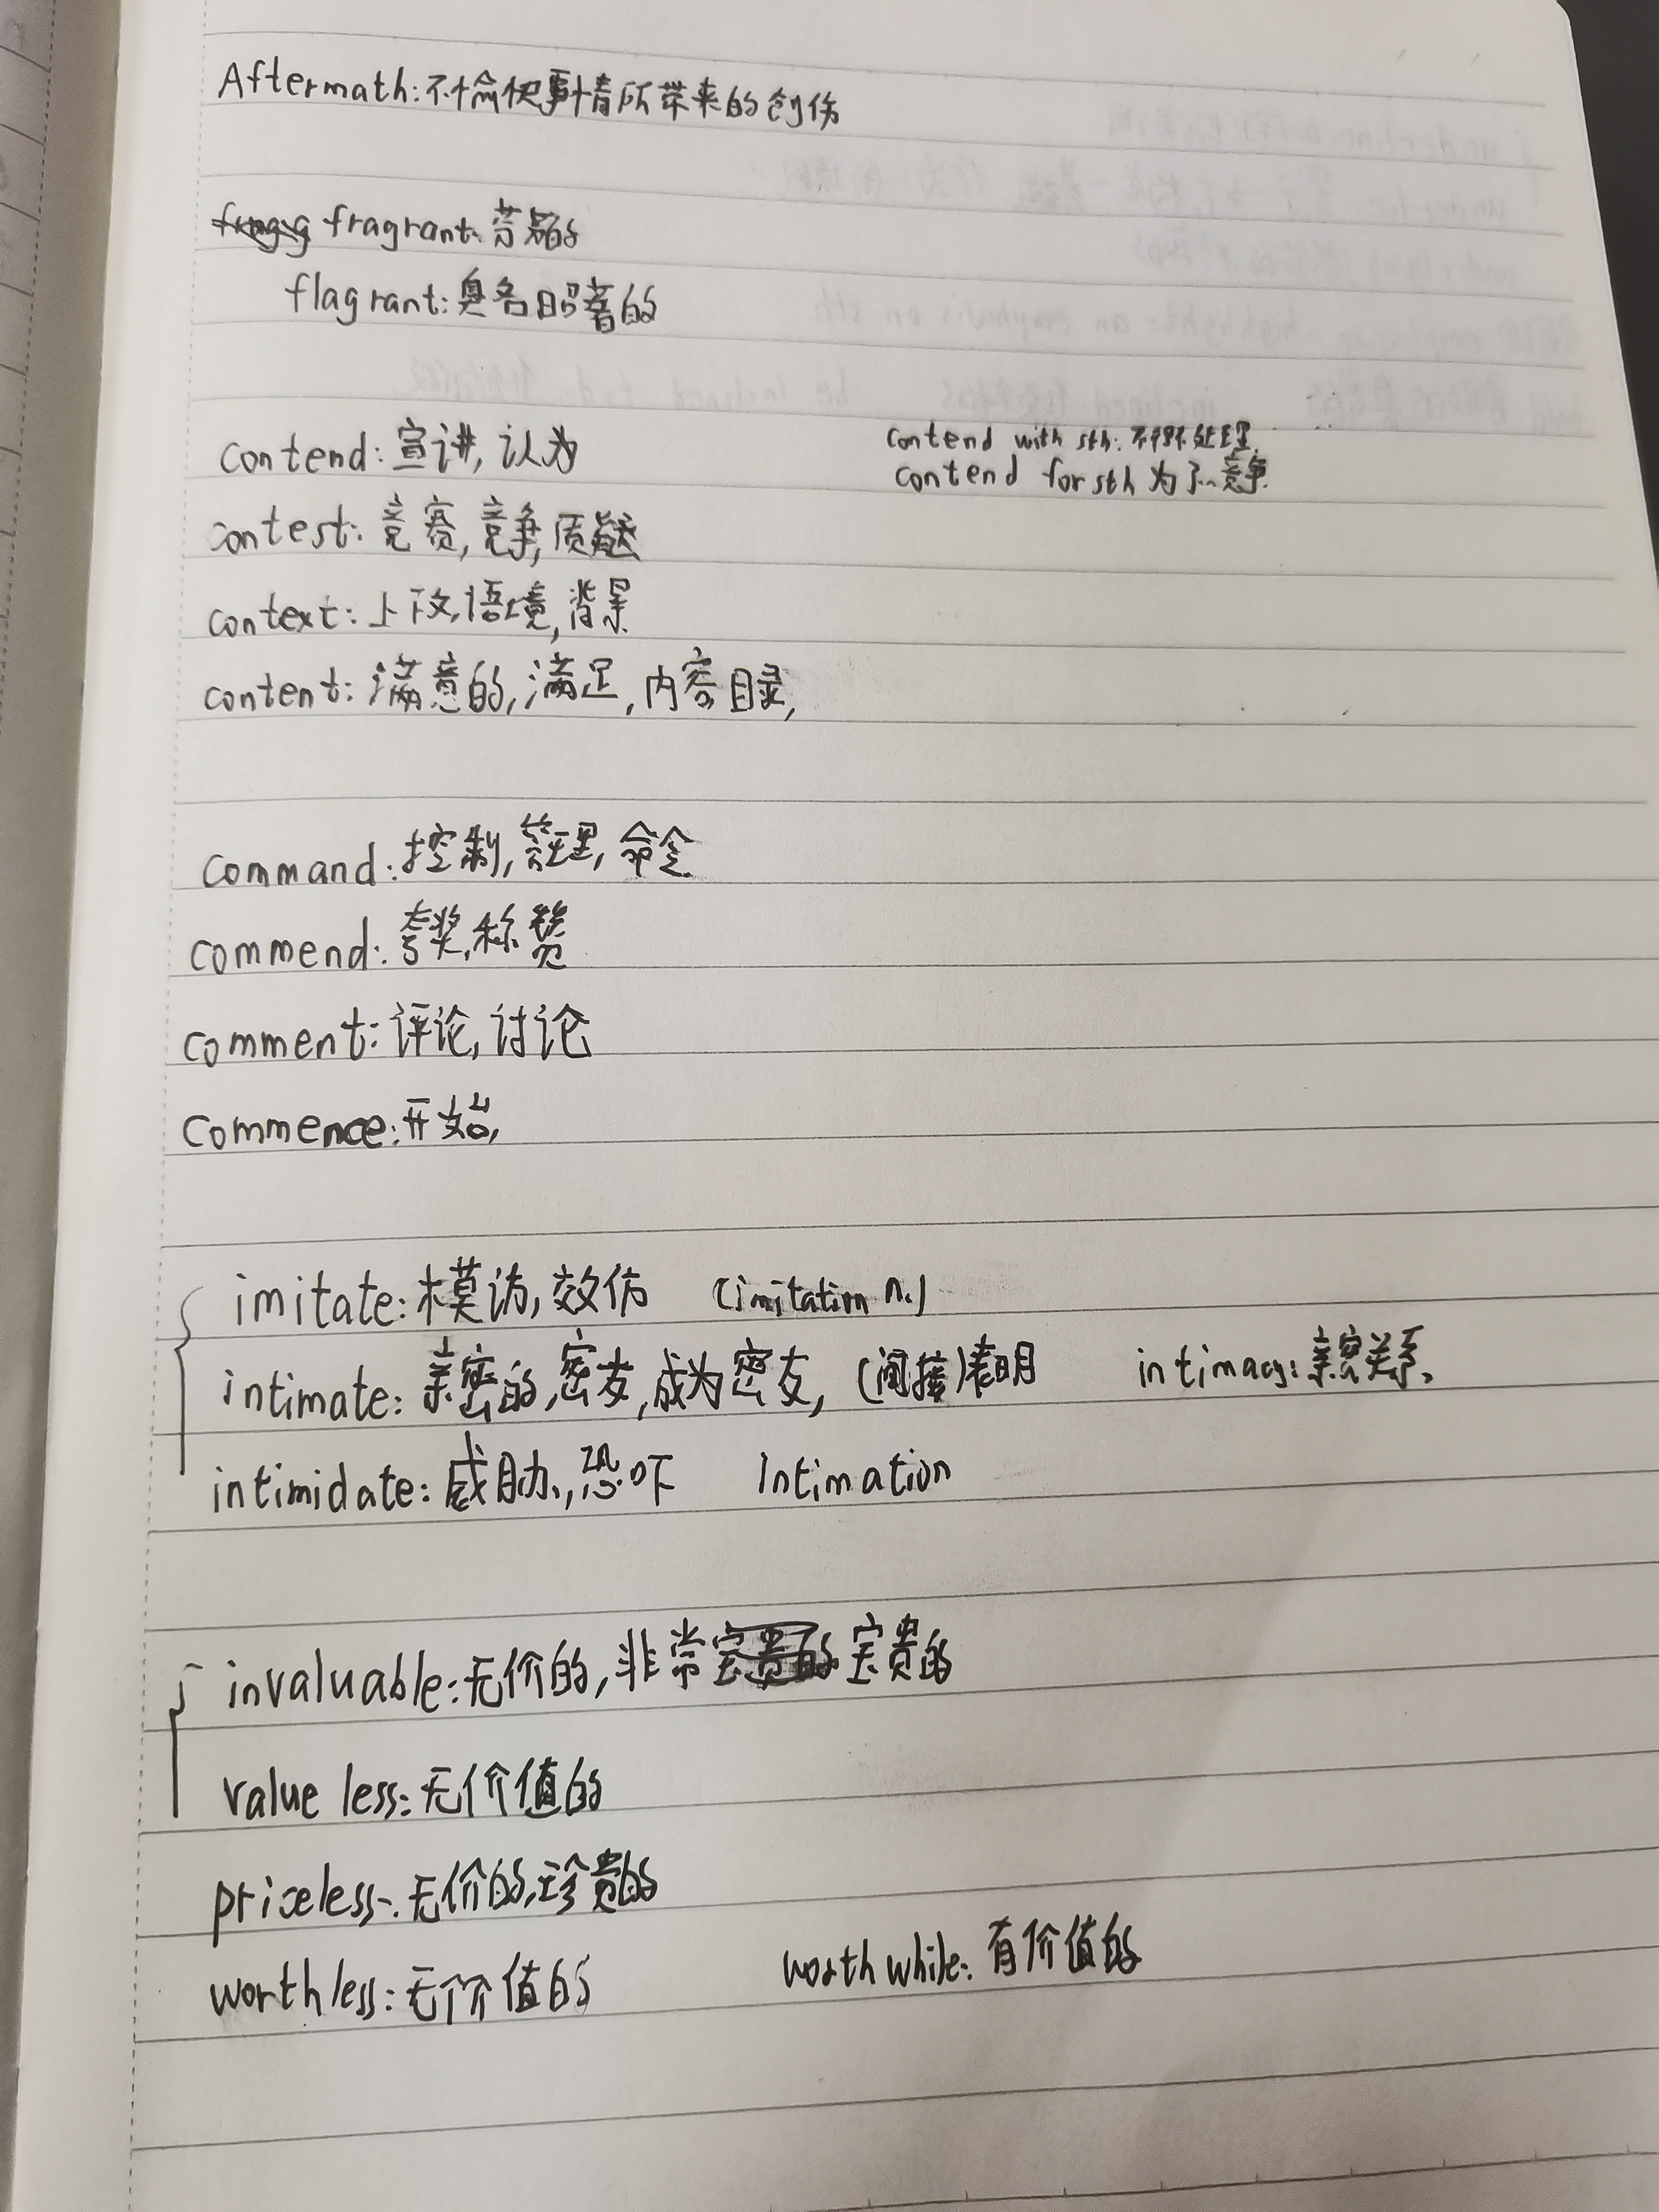 Aftermath:不愉快事情所带来的创伤
fragrant:芬芳的
flagrant:臭名昭著的
contend:宣讲,认为 contend with sth:不得不处理.
contend for sth 为了...竞争.
contest:竞赛,竞争,质疑
context:上下文,语境,背景
content:满意的,满足,内容,目录,
command:控制,管理,命令
commend:夸奖,称赞
comment:评论,讨论
commence:开始,
imitate:模访,效仿 (imitation n.)
intimate:亲密的,密友,成为密友,(间接)表明 intimacy:亲密关系.
intimidate:威胁,恐吓 Intimation
invaluable:无价的,非常宝贵的
valueless:无价值的
priceless:无价的,珍贵的
worthless:无价值的 worthwhile:有价值的